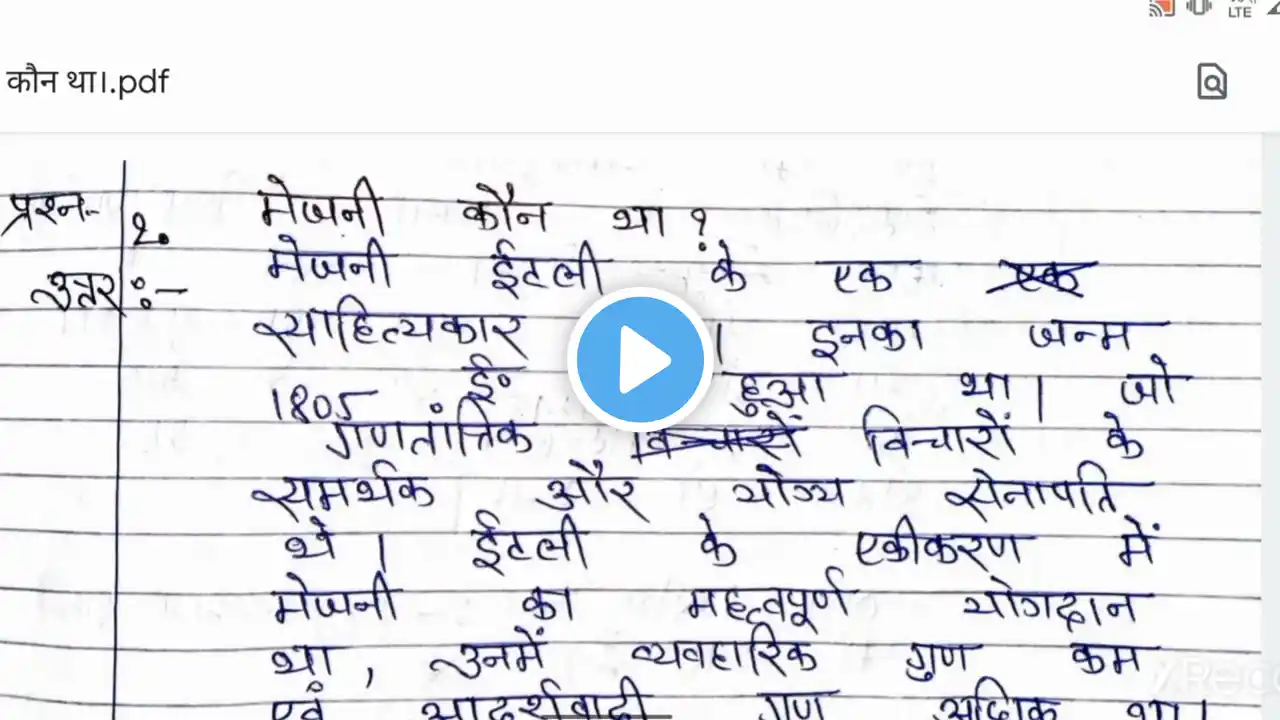 LTE
कौन था।.pdf
प्रश्न- 1. मेजनी कौन था ?
उत्तर :- मेजनी ईटली के एक एक
साहित्यकार । इनका जन्म
1805 ई० हुआ था। जो
गणतांत्रिक विचारों विचारों के
समर्थक और योग्य सेनापति
थे । ईटली के एकीकरण में
मेजनी का महत्वपूर्ण योगदान
था , उनमें व्यवहारिक गुण कम
एवं आदर्शवादी गुण अधिक था।